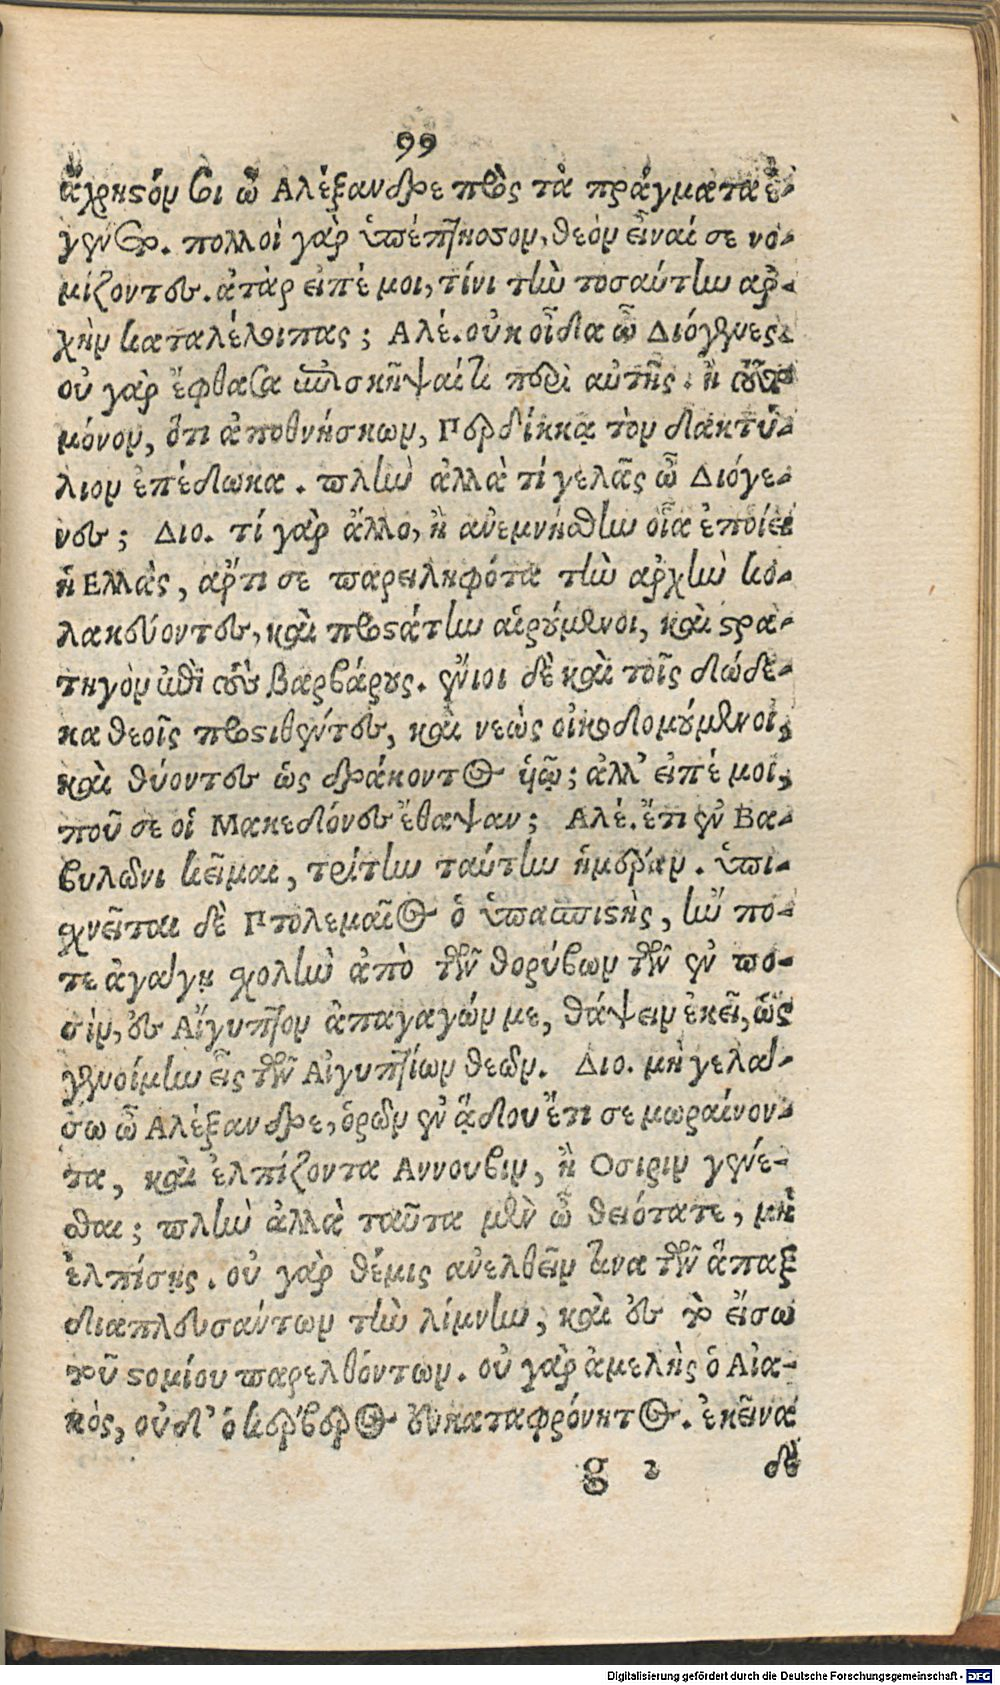 99
ἄχρηστόν σοι ὦ Αλέξανδρε πρὸς τὰ πράγματα ἐ-
γένετο. πολλοὶ γὰρ ὑπέπτησσον, θεὸν εἶναί σε νο-
μίζοντες. ἀτὰρ εἰπέ μοι, τίνι τὴν τοσαύτην αρ-
χὴν καταλέλοιπας; Αλέ. οὐκ οἶδα ὦ Διόγενες.
οὐ γὰρ ἔφθασα ἐπισκῆψαί τι περὶ αὐτῆς. ἢ τοῦτο
μόνον, ὅτι ἀποθνήσκων, Περδίκκᾳ τὸν δακτύ-
λιον ἐπέδωκα. πλὴν ἀλλὰ τί γελᾷς ὦ Διόγε-
νες; Διο. τί γὰρ ἄλλο, ἢ ανεμνήσθην οἷα ἐποίει
ἡ Ελλὰς, αρτι σε παρειληφότα τὴν αρχὴν κο-
λακεύοντες, καὶ προστάτην αἱρούμενοι, καὶ στρα-
τηγὸν ἐπὶ τοὺς βαρβάρους. ἔνιοι δὲ καὶ τοῖς δώδε-
κα θεοῖς προστιθέντες, καὶ νεὼς οἰκοδομούμενοι,
καὶ θύοντες ὡς δράκοντος ὑῷ; ἀλλ' εἰπέ μοι,
ποῦ σε οἱ Μακεδόνες ἔθαψαν; Αλέ. ἔτι ἐν Βα-
βυλῶνι κεῖμαι, τρίτην ταύτην ἡμέραν. ὑπι-
σχνεῖται δὲ Πτολεμαῖος ὁ ὑπασπιστὴς, ἤν πο-
τε ἀγάγῃ σχολὴν ἀπὸ τῶν θορύβων τῶν ἐν πο-
σὶν, ἐς Αἴγυπτον ἀπαγαγών με, θάψειν ἐκεῖ, ὡς
γενοίμην εἷς τῶν Αἰγυπτίων θεῶν. Διο. μὴ γελά-
σω ὦ Αλέξανδρε, ὁρῶν ἐν ᾅδου ἔτι σε μωραίνον-
τα, καὶ ἐλπίζοντα Αννουβιν, ἢ Οσιριν γενέ-
σθαι; πλὴν ἀλλὰ ταῦτα μὲν ὦ θειότατε, μὴ
ἐλπίσῃς. οὐ γὰρ θέμις ανελθεῖν τινα τῶν ἅπαξ
διαπλευσάντων τὴν λίμνην, καὶ ἐς τὸ εἴσω
τοῦ στομίου παρελθόντων. οὐ γὰρ ἀμελὴς ὁ Αἰα-
κὸς, οὐδ' ὁ κέρβερος εὐκαταφρόνητος. ἐκεῖνα
g 2 δὲ
Digitalisierung gefördert durch die Deutsche Forschungsgemeinschaft - DFG